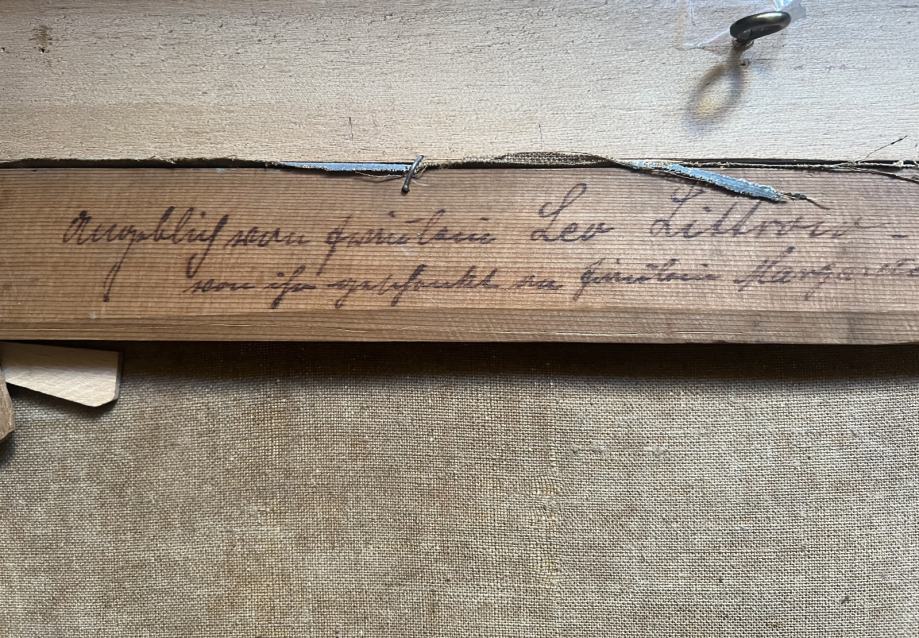 Angeblich von Fräulein Leo Littrow -
von ihr geschenkt an Fräulein Margarete